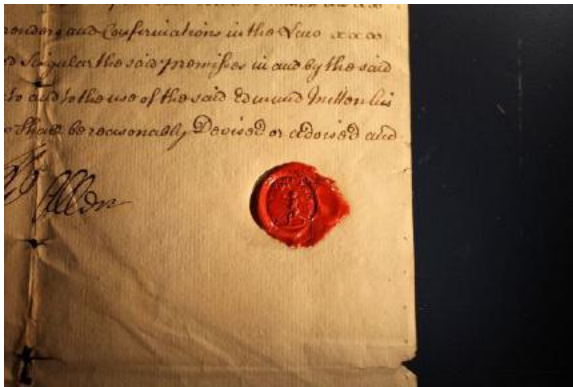 and Confirmations in the Law
Singular the said premisses in and by the said
to and to the use of the said Edmund his
Should be reasonably Devised or advised and
Allen